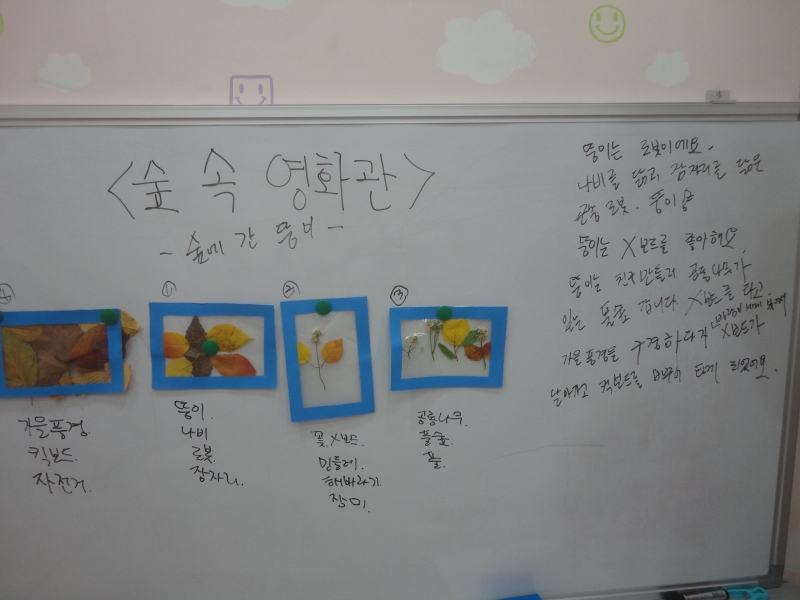 <숲 속 영화관>
- 숲에 간 뚱이 -
④
가을풍경.
킥보드.
자전거.
①
뚱이.
나비
로봇.
잠자리.
②
꽃. X보드.
민들레.
해바라기.
장미.
③
공룡나무.
풀숲.
풀.
뚱이는 로봇이에요.
나비를 닮고 잠자리를 닮은
곤충 로봇. 뚱이
뚱이는 X보드를 좋아해요.
뚱이는 친구 만들러 공룡나무가
있는 풀숲 갑니다. X보드를 타고
가을 풍경을 구경하다가 X보드가
날아가고 킥보드를 타게 되었어요.